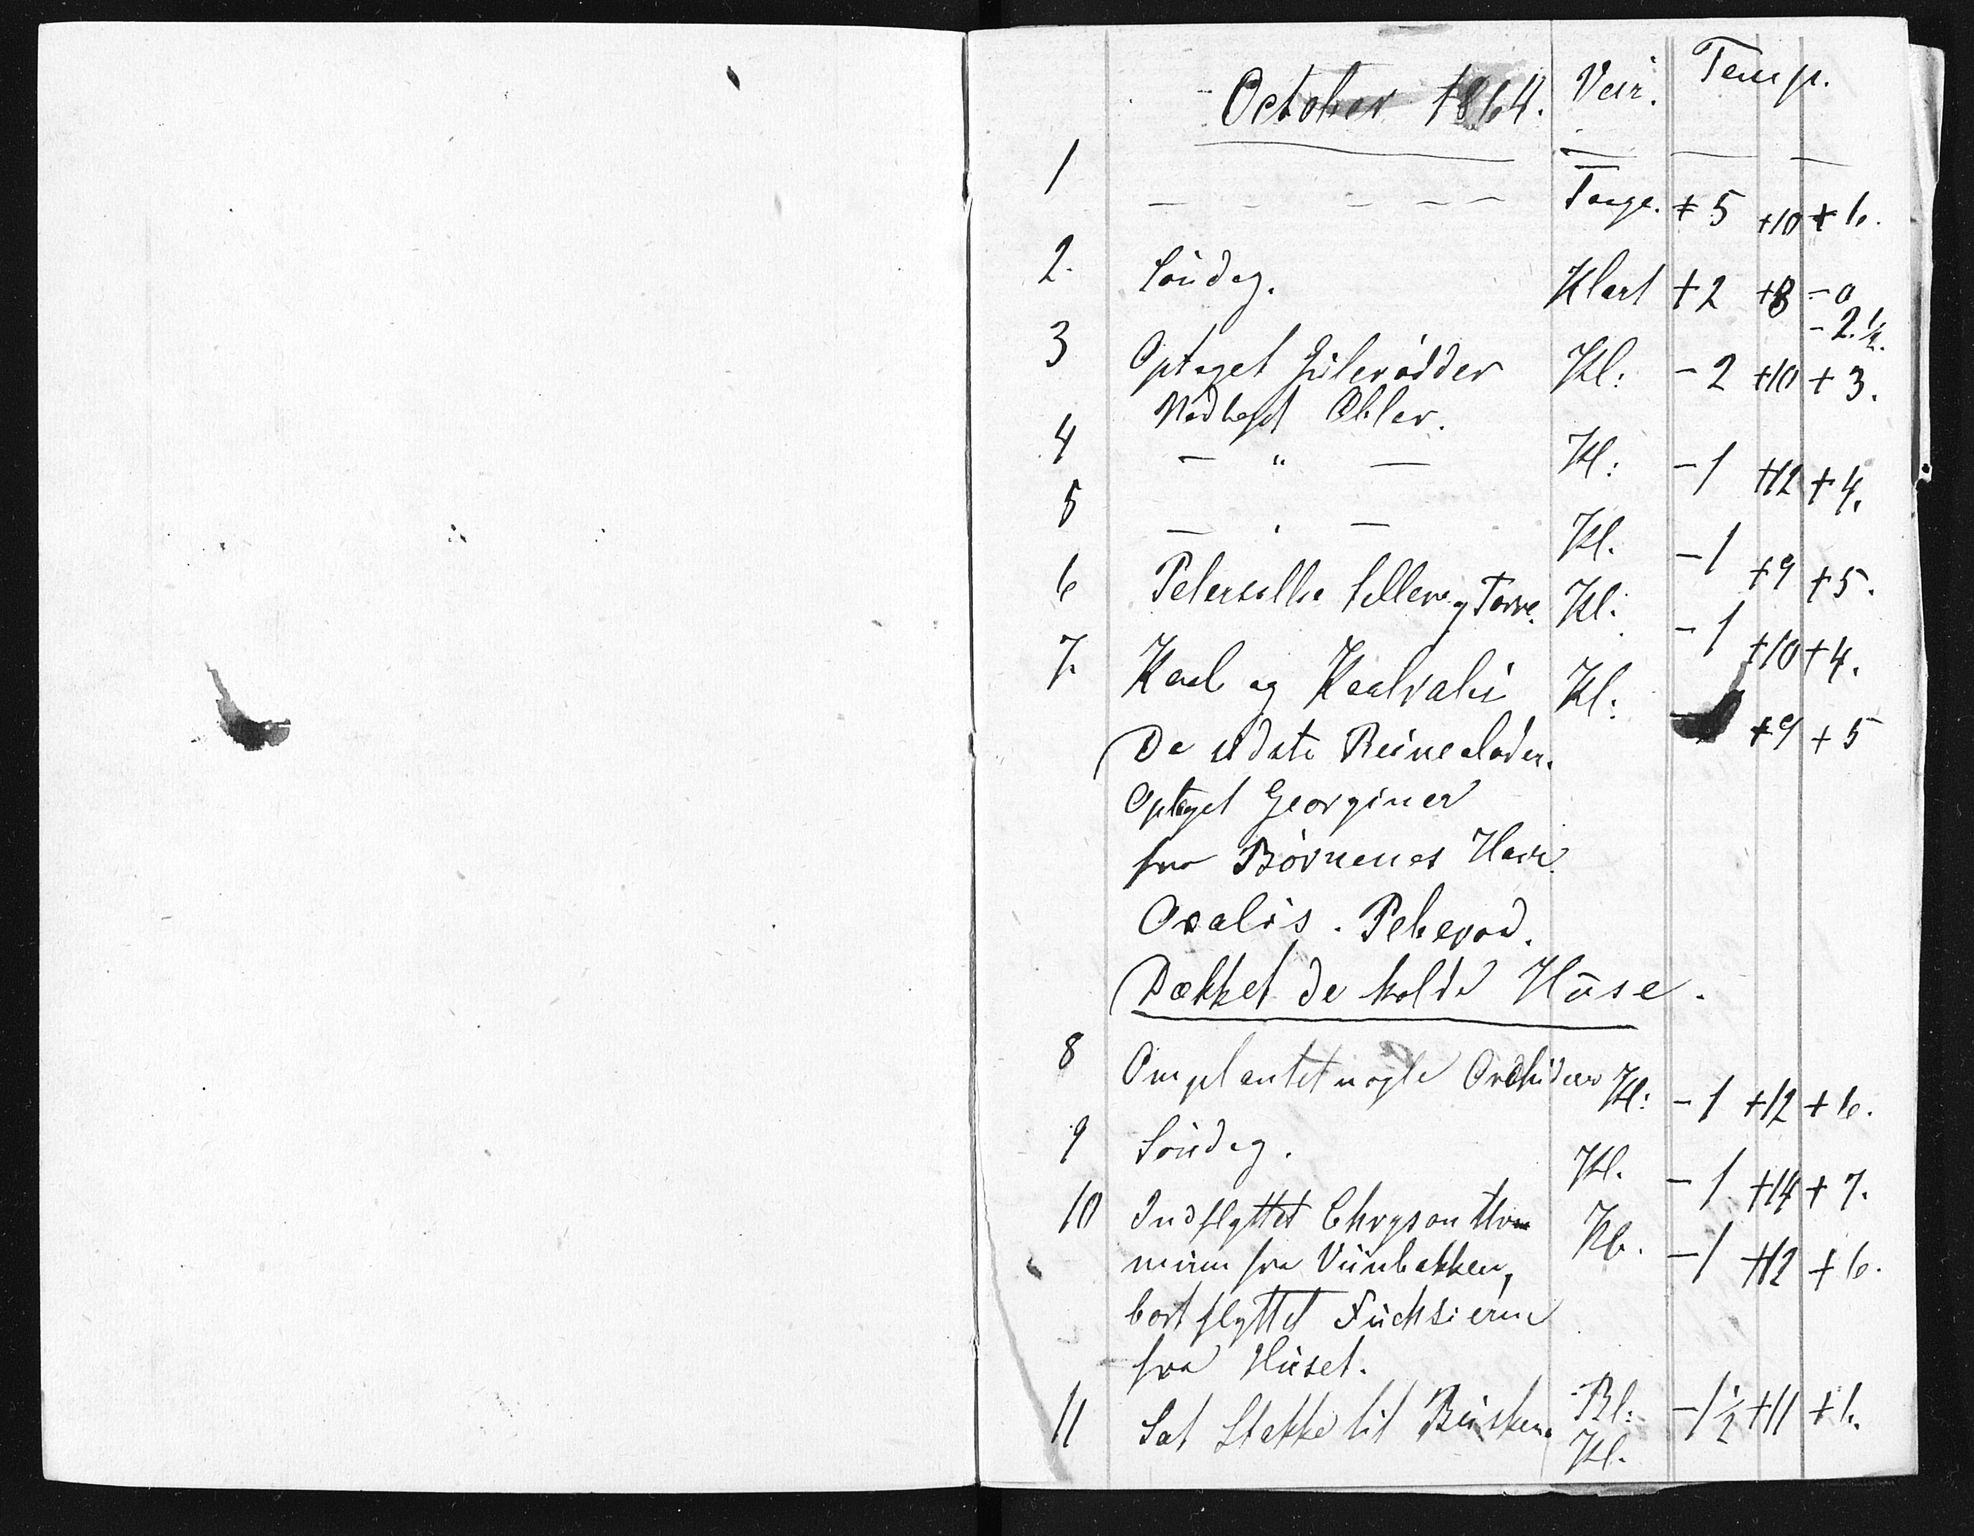 October 1864. Veir. Temp.
1 — — — — — — Taage. +5 +10 +6.
2. Söndag. Klart +2 +8 -0
-2.½.
3 Optaget Gulerödder Kl: -2 +10 +3.
Nedlagt Æbler.
4 — " — Kl: -1 +12 +4.
5 — . — Kl. -1 +9 +5.
6 Petersille Selleri og Porre. Kl: -1 +10 +4.
7. Kaal og Kaalrabi Kl: +9 +5
De sidste Reinecloder.
Optaget Georginer
fra Börnenes Have.
Oxalis. Peberrod.
Dækket de kolde Huse.
8 Omplantet nogle Orchideer Kl: -1 +12 +6.
9 Söndag. Kl. -1 +14 +7.
10 Indflyttet Chrysanthe
mum fra Viinbakken, Kl. -1 +12 +6.
bortflyttet Fuchsierne
fra Huset.
11 Sat Stakke til Buskene Bl: -1½ +11 +6.
Kl.